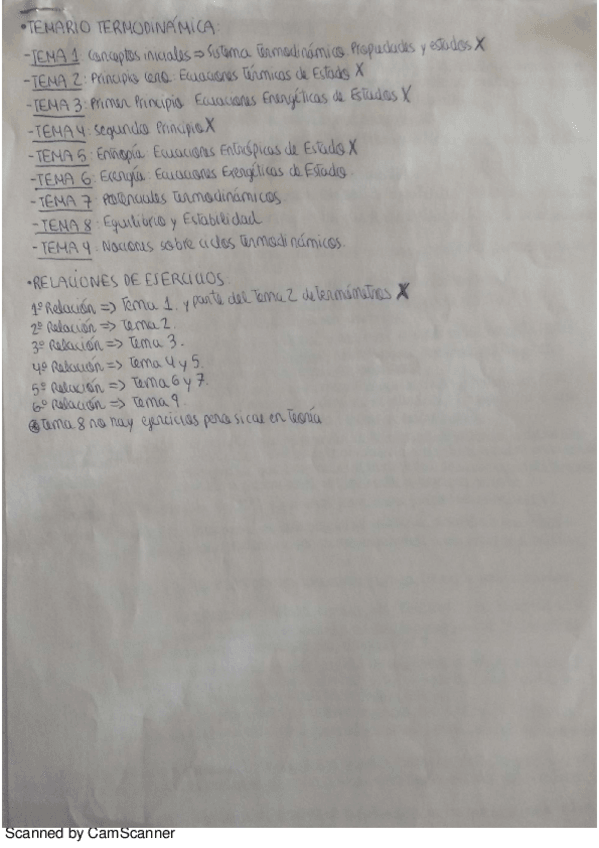 •TEMARIO TERMODINÁMICA:
-TEMA 1: Conceptos iniciales => Sistema Termodinámico. Propiedades y estados X
-TEMA 2: Principio cero. Ecuaciones Térmicas de Estado X
-TEMA 3: Primer Principio. Ecuaciones Energéticas de Estados X
-TEMA 4: Segundo Principio X
-TEMA 5: Entropía. Ecuaciones Entrópicas de Estado X
-TEMA 6: Exergía. Ecuaciones Exergéticas de Estado.
-TEMA 7: Potenciales Termodinámicos.
-TEMA 8: Equilibrio y Estabilidad
-TEMA 9: Nociones sobre ciclos Termodinámicos.
•RELACIONES DE EJERCICIOS
1º Relación => Tema 1. y parte del Tema 2 de Termómetros X
2º Relación => Tema 2.
3º Relación => Tema 3.
4º Relación => Tema 4 y 5.
5º Relación => Tema 6 y 7.
6º Relación => Tema 9.
Tema 8 no hay ejercicios pero si cae en Teoría
Scanned by CamScanner